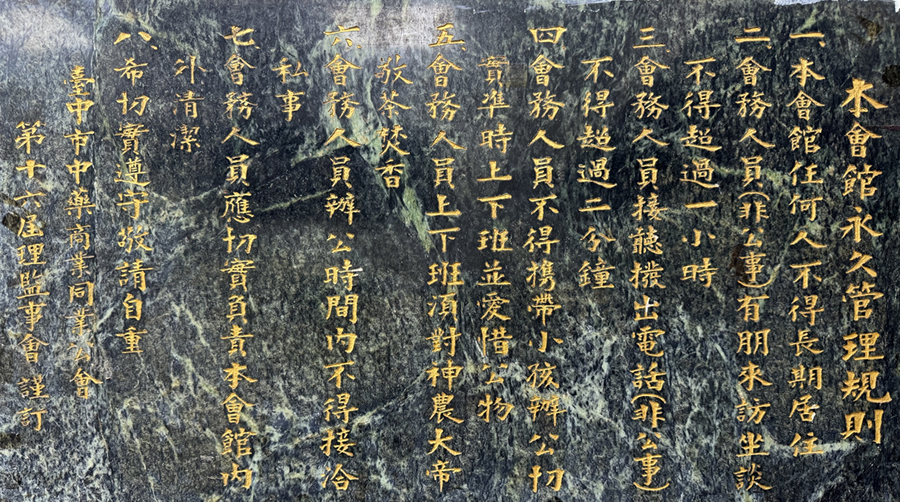 本會館永久管理規則
一、本會館任何人不得長期居住
二、會務人員(非公事)有朋來訪坐談
不得超過一小時
三、會務人員接聽撥出電話(非公事)
不得超過二分鐘
四、會務人員不得携帶小孩辦公切
實準時上下班並愛惜公物
五、會務人員上下班湏對神農大帝
敬茶焚香
六、會務人員辦公時間内不得接洽
私事
七、會務人員應切實負責本會館内
外清潔
八、希切實遵守敬請自重
臺中市中藥商業同業公會
第十六屆理監事會 謹訂